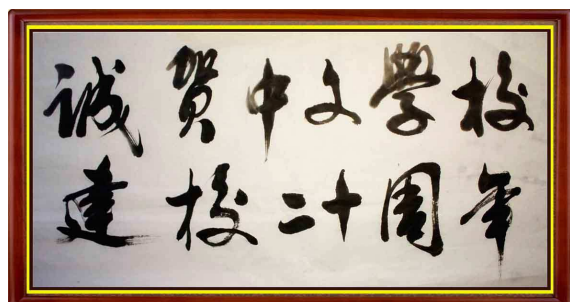 誠賀中文學校
建校二十周年